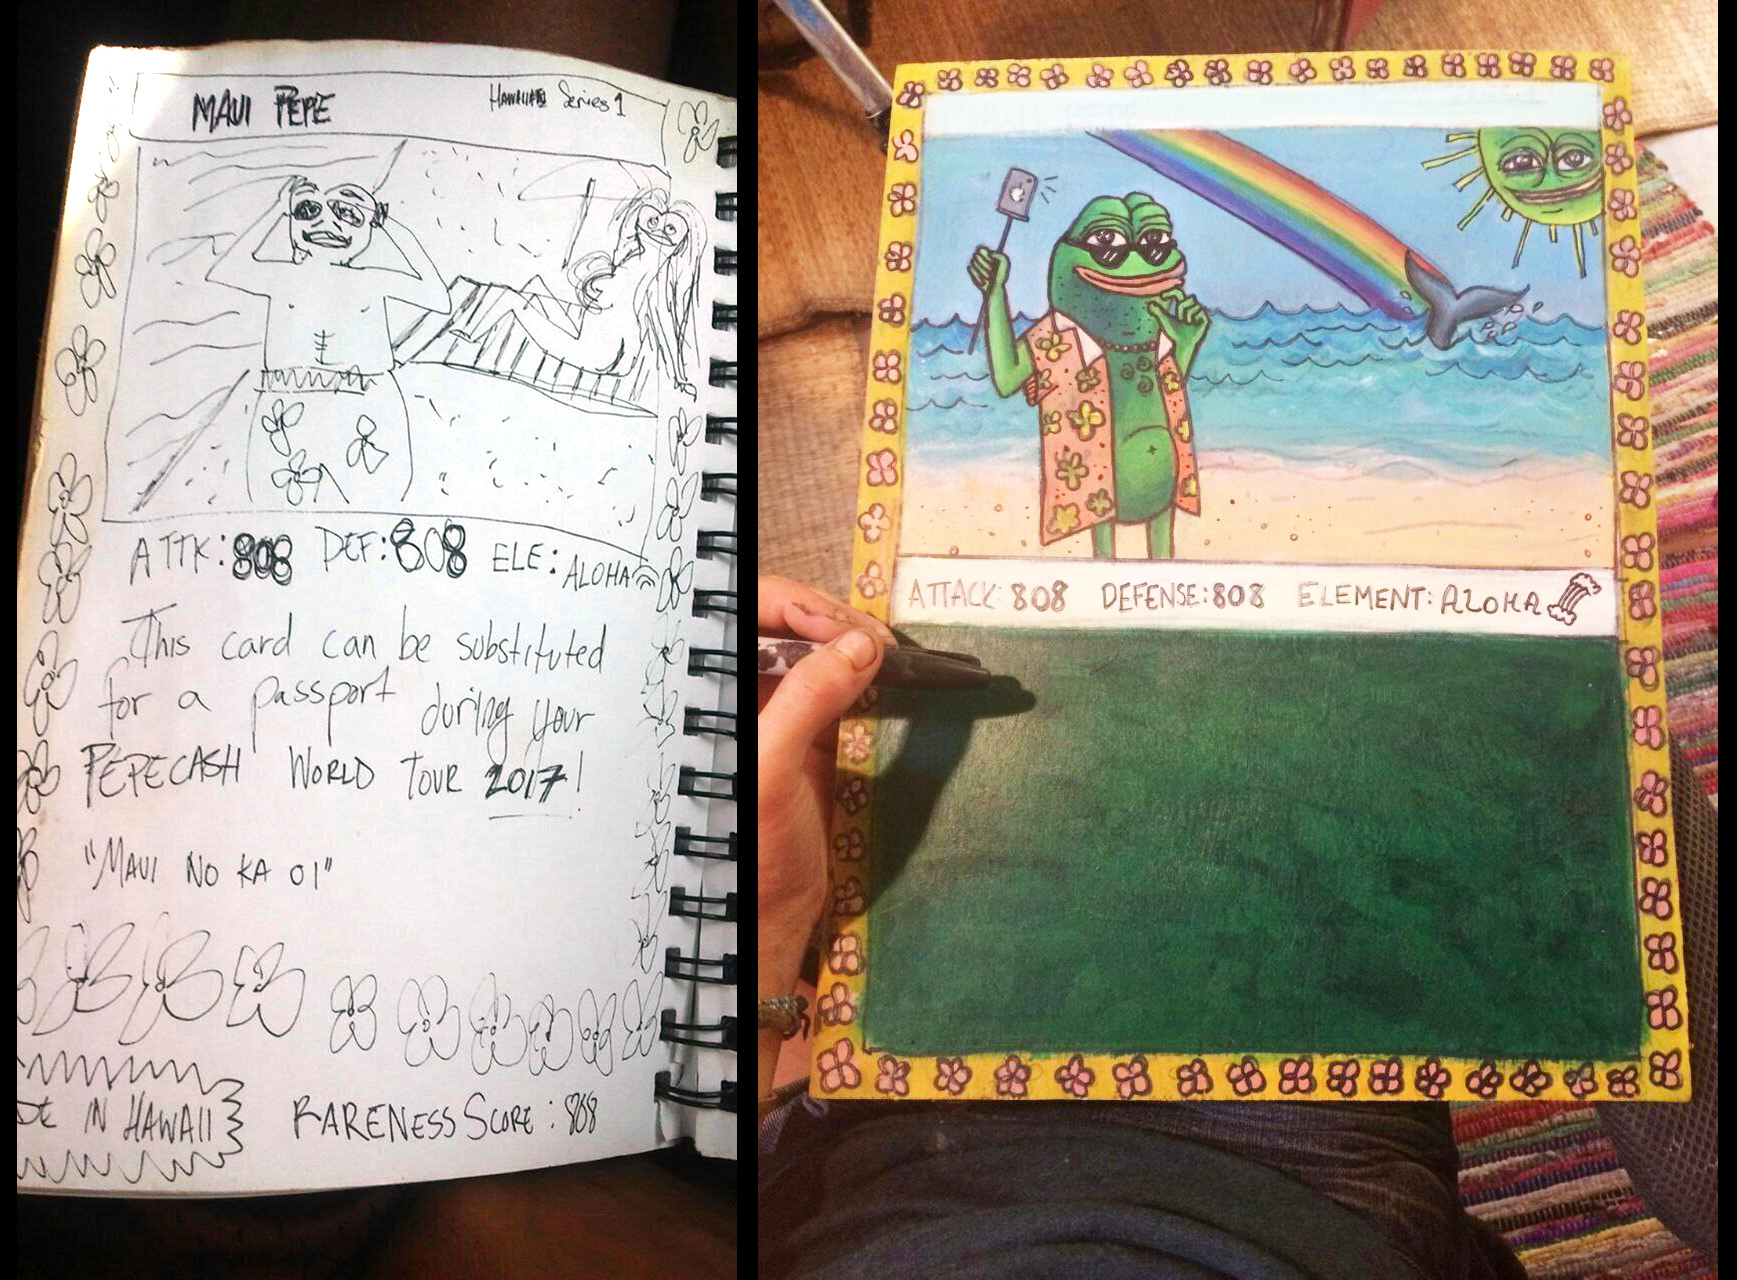 MAUI PEPE
HAWAIIAN Series 1
ATTK: 808 DEF: 808 ELE: ALOHA
This card can be substituted
for a passport during your
PEPECASH WORLD TOUR 2017!
"MAUI NO KA OI"
DE IN HAWAII
RARENESS SCORE: 808
ATTACK: 808 DEFENSE: 808 ELEMENT: ALOHA